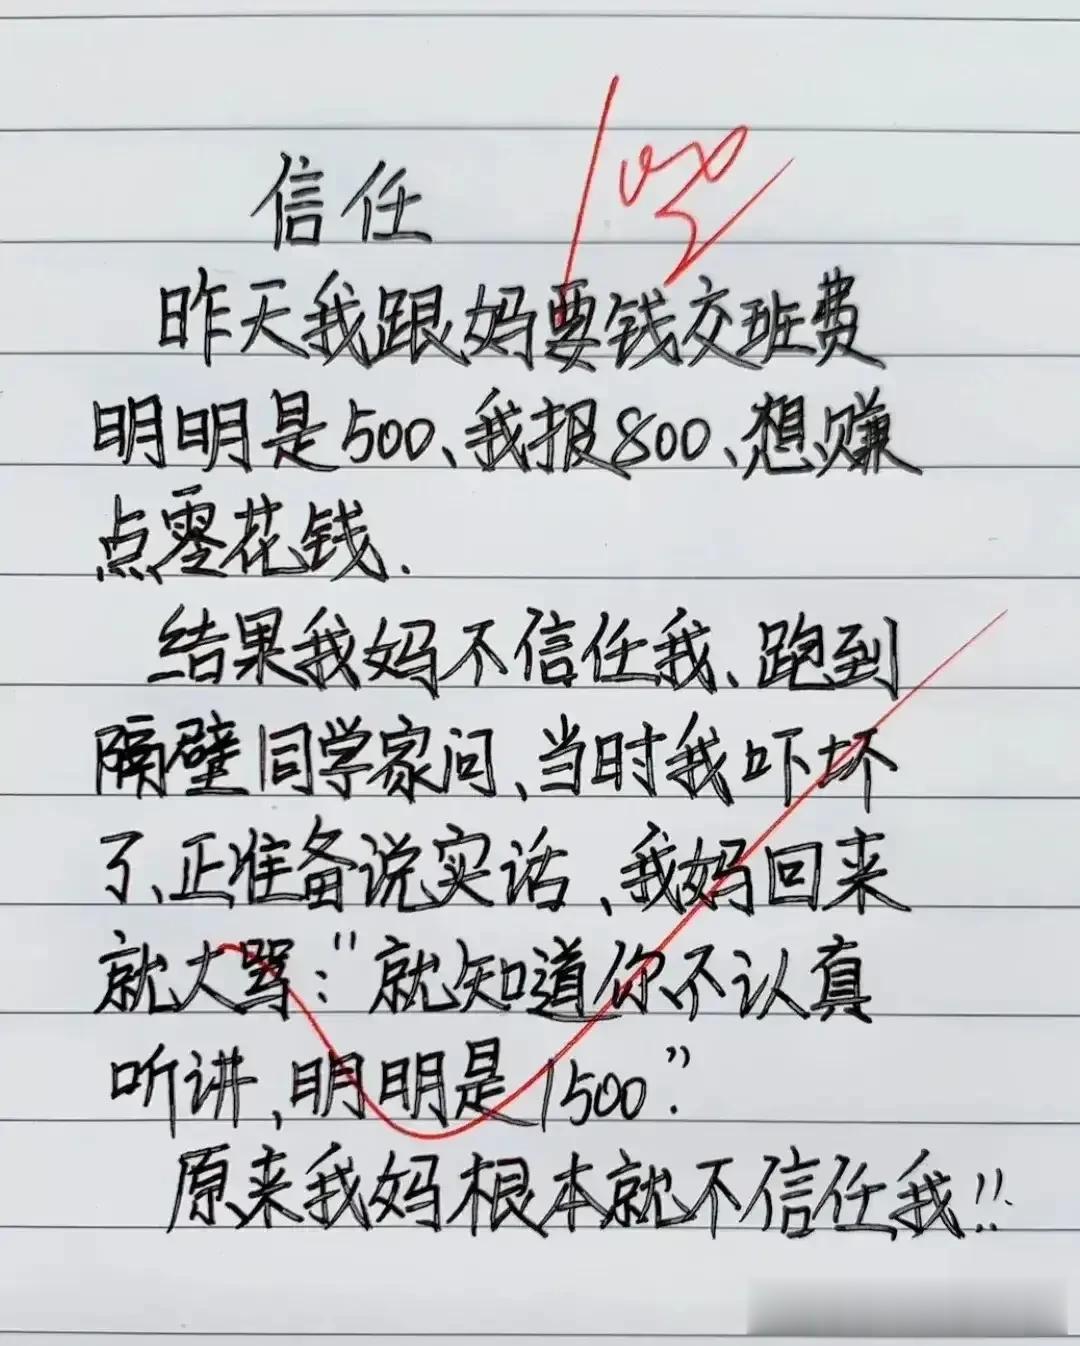 100
信任
昨天我跟妈要钱交班费
明明是500、我报800、想赚
点零花钱.
结果我妈不信任我、跑到
隔壁同学家问、当时我吓坏
了、正准备说实话、我妈回来
就大骂："就知道你不认真
听讲,明明是1500".
原来我妈根本就不信任我!!